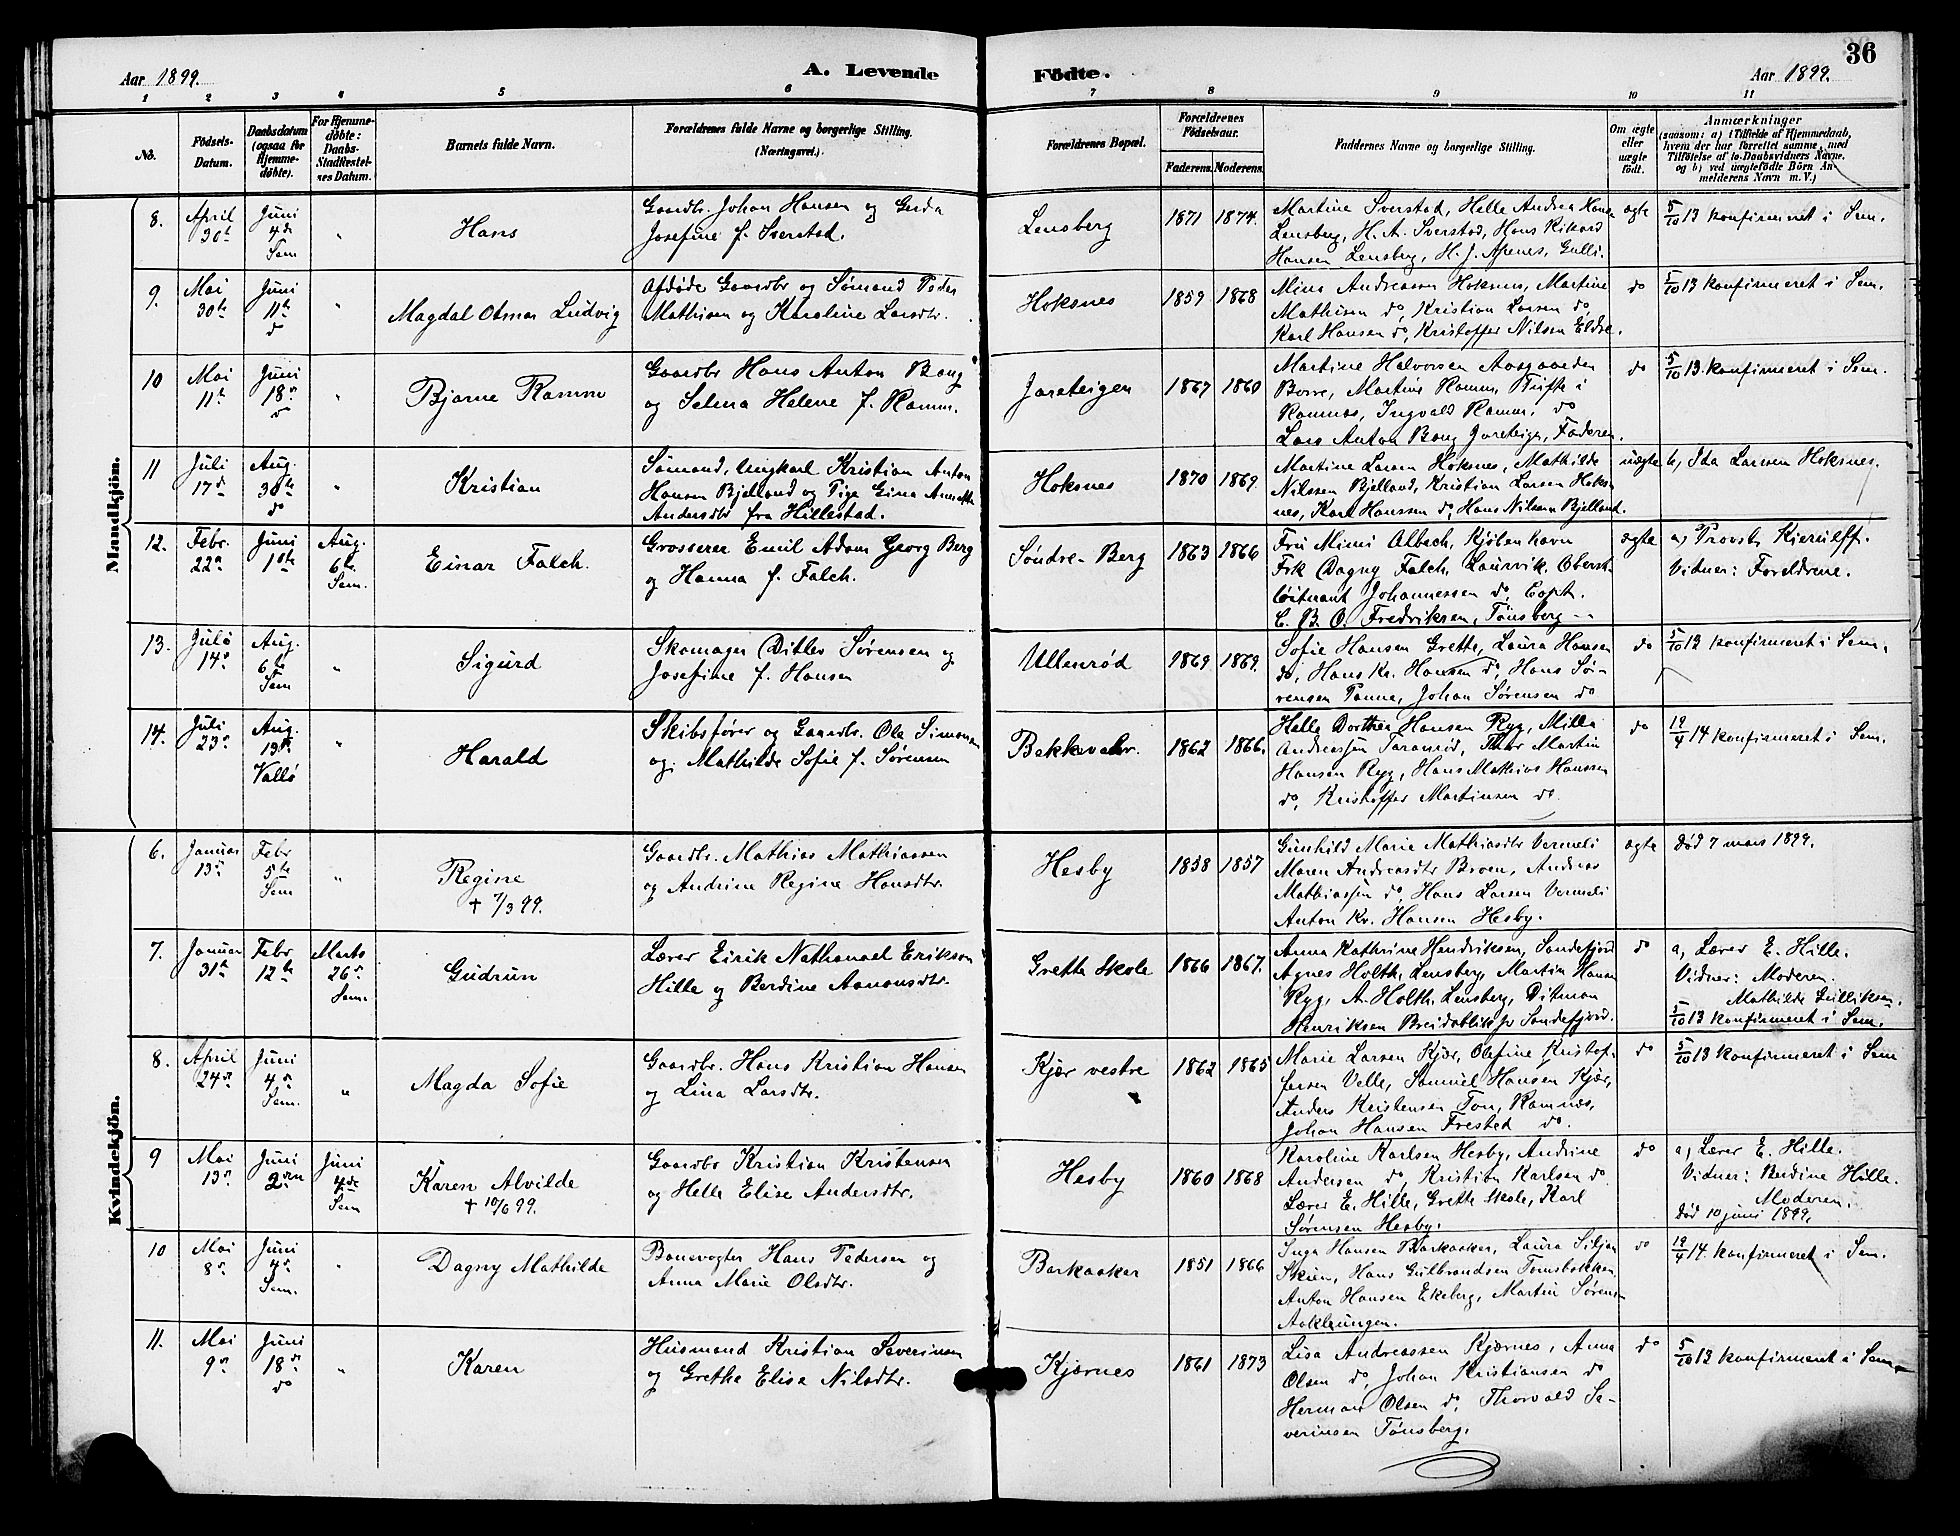 36
Aar 1899.
A. Levende Födte.
Aar 1899.
1 2 3 4 5 6 7 8 9 10 11
No.
Fødsels-Datum.
Daabsdatum (ogsaa for Hjemme-døbte).
For Hjemme-døbte: Daabs-Stadfæstel-ses Datum.
Barnets fulde Navn.
Forældrenes fulde Navne og borgerlige Stilling. (Næringsvei.)
Forældrenes Bopæl.
Forældrenes Fødselsaar.
Faderens. Moderens.
Faddernes Navne og borgerlige Stilling.
Om ægte eller uægte født.
Anmærkninger
(saasom: a) i Tilfælde af Hjemmedaab,
hvem der har forrettet samme, med
Tilføielse af to Daabsvidners Navne,
og b) ved uægtefødte Börn An-
melderens Navn m. V.)
Mandkjön.
8. April 30te Juni 4de Sem " Hans
Gaardbr. Johan Hansen og Gerda
Josefine f. Sverstad.
Lensberg 1871 1874.
Martine Sverstad, Helle Andrea Hans
Lensberg, H. A. Sverstad, Hans Rikard
Hansen Lensberg, H. J. Apenes, Gulli.
ægte 5/10 13 konfirmeret i Sem.
9. Mai 30te Juni 11te do " Magdal Otmar Ludvig
Afdøde Gaardbr og Sømand Peder
Mathisen og Karoline Larsdtr.
Hoksnes 1859 1868
Mina Andreassen Hoksnes, Martine
Mathisen do, Kristian Larsen do,
Karl Hansen do, Kristoffer Nilsen Eldre.
do 5/10 13 konfirmeret i Sem.
10 Mai 11te Juni 18de do " Bjarne Ramm
Gaardbr Hans Anton Bang
og Selma Helene f. Ramm.
Jareteigen 1867 1860
Martine Halvorsen Aasgaarden
Borre, Martin Ramm, Tufte i
Ramnæs, Ingvald Ramm, do
Lars Anton Bang Jareteigen, Faderen.
do 5/10 13 konfirmeret i Sem.
11 Juli 17de Aug. 30te do " Kristian
Sømand, Ungkarl Kristian Anton
Hansen Bjelland og Pige Gina Annette
Andersdtr fra Hillestad.
Hoksnes 1870 1869.
Martine Larsen Hoksnes, Mathilde
Nilssen Bjelland, Kristian Larsen Hoks-
nes, Karl Hanssen do, Hans Nilsen Bjelland.
uægte b, Ida Larssen Hoksnes.
12. Febr. 22de Juni 1ste Aug. 6te Sem. Einar Falch.
Grosserer Emil Adam Georg Berg
og Hanna f. Falch.
Søndre Berg 1863 1866
Fru Mimi Albech, Kjøbenhavn
Frk Dagny Falch, Laurvik. Oberst-
løitnant Johannessen do, Capt.
C. B. O. Fredriksen, Tønsberg
ægte a, Provst Kierulff.
Vidner: Foreldrene.
13. Juli 14de Aug. 6te Sem " Sigurd
Skomager Ditlev Sørensen og
Josefine f. Hansen
Ullenrød 1869. 1869.
Sofie Hansen Grette, Laura Hansen
do, Hans Kr. Hansen do, Hans Sø-
rensen Tanna, Johan Sørensen do
do 5/10 13 konfirmeret i Sem.
14. Juli 23de Aug. 13de Vallø " Harald
Skibsfører og Gaardbr. Ole Simonsen
og Mathilde Sofie f. Sørensen
Bekkevahr. 1862 1866.
Helle Dorthea Hansen Ryg, Milla
Andreassen, Thor Martin
Hansen Ryg, Hans Mathias Hanssen
do, Kristoffer Martinsen do.
do 19/4 14 konfirmeret i Sem.
Kvindekjön.
6. Januar 13de Febr 5te Sem " Regine
† 7/3 99.
Gaardbr. Mathias Mathiassen
og Andrine Regine Hansdtr.
Hesby 1858 1857
Gunhild Marie Mathiasdtr Vermeli
Maren Andreasdtr Broen, Andreas
Mathiassen do, Hans Larsen Vermeli
Anton Kr. Hansen Hesby.
ægte død 7 mars 1899.
7. Januar 31te Febr 12te Marts 26de Sem. Gudrun
Lærer Eirik Nathanael Erikson
Hille og Berdine Aanonsdtr.
Grette Skole 1866 1867.
Anna Kathrine Hendriksen, Sandefjord
Agnes Holth, Lensberg, Martin Hansen
Ryg, A. Holth, Lensberg, Ditman
Henriksen Breidablik pr Sandefjord.
do a, Lærer E. Hille.
Vidner: Moderen.
Mathilde Gulliksen.
5/10 13 konfirmeret i Sem.
8. April 24de Juni 4de Sem. " Magda Sofie
Gaardbr. Hans Kristian Hansen
og Lina Larsdtr.
Kjær vestre 1862 1865
Marie Larsen Kjær, Olefine Kristof-
fersen Velle, Samuel Hansen Kjær,
Anders Kristensen Ton, Ramnæs,
Johan Hansen Frested do.
do 5/10 13 konfirmeret i Sem
9 Mai 13de Juni 2den Juni 4de Sem Karen Alvilde
† 10/6 99.
Gaardbr Kristian Kristensen
og Helle Elise Andersdtr.
Hesby 1860 1868
Karoline Karlsen Hesby, Andrine
Andersen do, Kristian Karlsen do
Lærer E. Hille, Grette Skole, Karl
Sørensen Hesby.
do a, Lærer E. Hille.
Vidner: Berdine Hille.
Moderen.
død 10 juni 1899.
10 Mai 8de Juni 4de Sem. " Dagny Mathilde
Banevogter Hans Pedersen og
Anna Marie Olsdtr.
Barkaaker 1851 1866
Inga Hansen Barkaaker, Laura Siljan
Skien, Hans Gulbrandsen Tomsbakken
Anton Hansen Ekeberg, Martin Sørens-
Aaklungen.
do 19/4 14. konfirmeret i Sem.
11. Mai 9de Juni 18de do " Karen
Husmand Kristian Severinsen
og Grethe Elise Nilsdtr.
Kjærnes 1861 1873
Lisa Andreassen Kjærnes, Anna
Olsen do, Johan Kristiansen do
Herman Olsen do, Thorvald Se-
verinsen Tønsberg.
do 5/10 13 konfirmeret i Sem